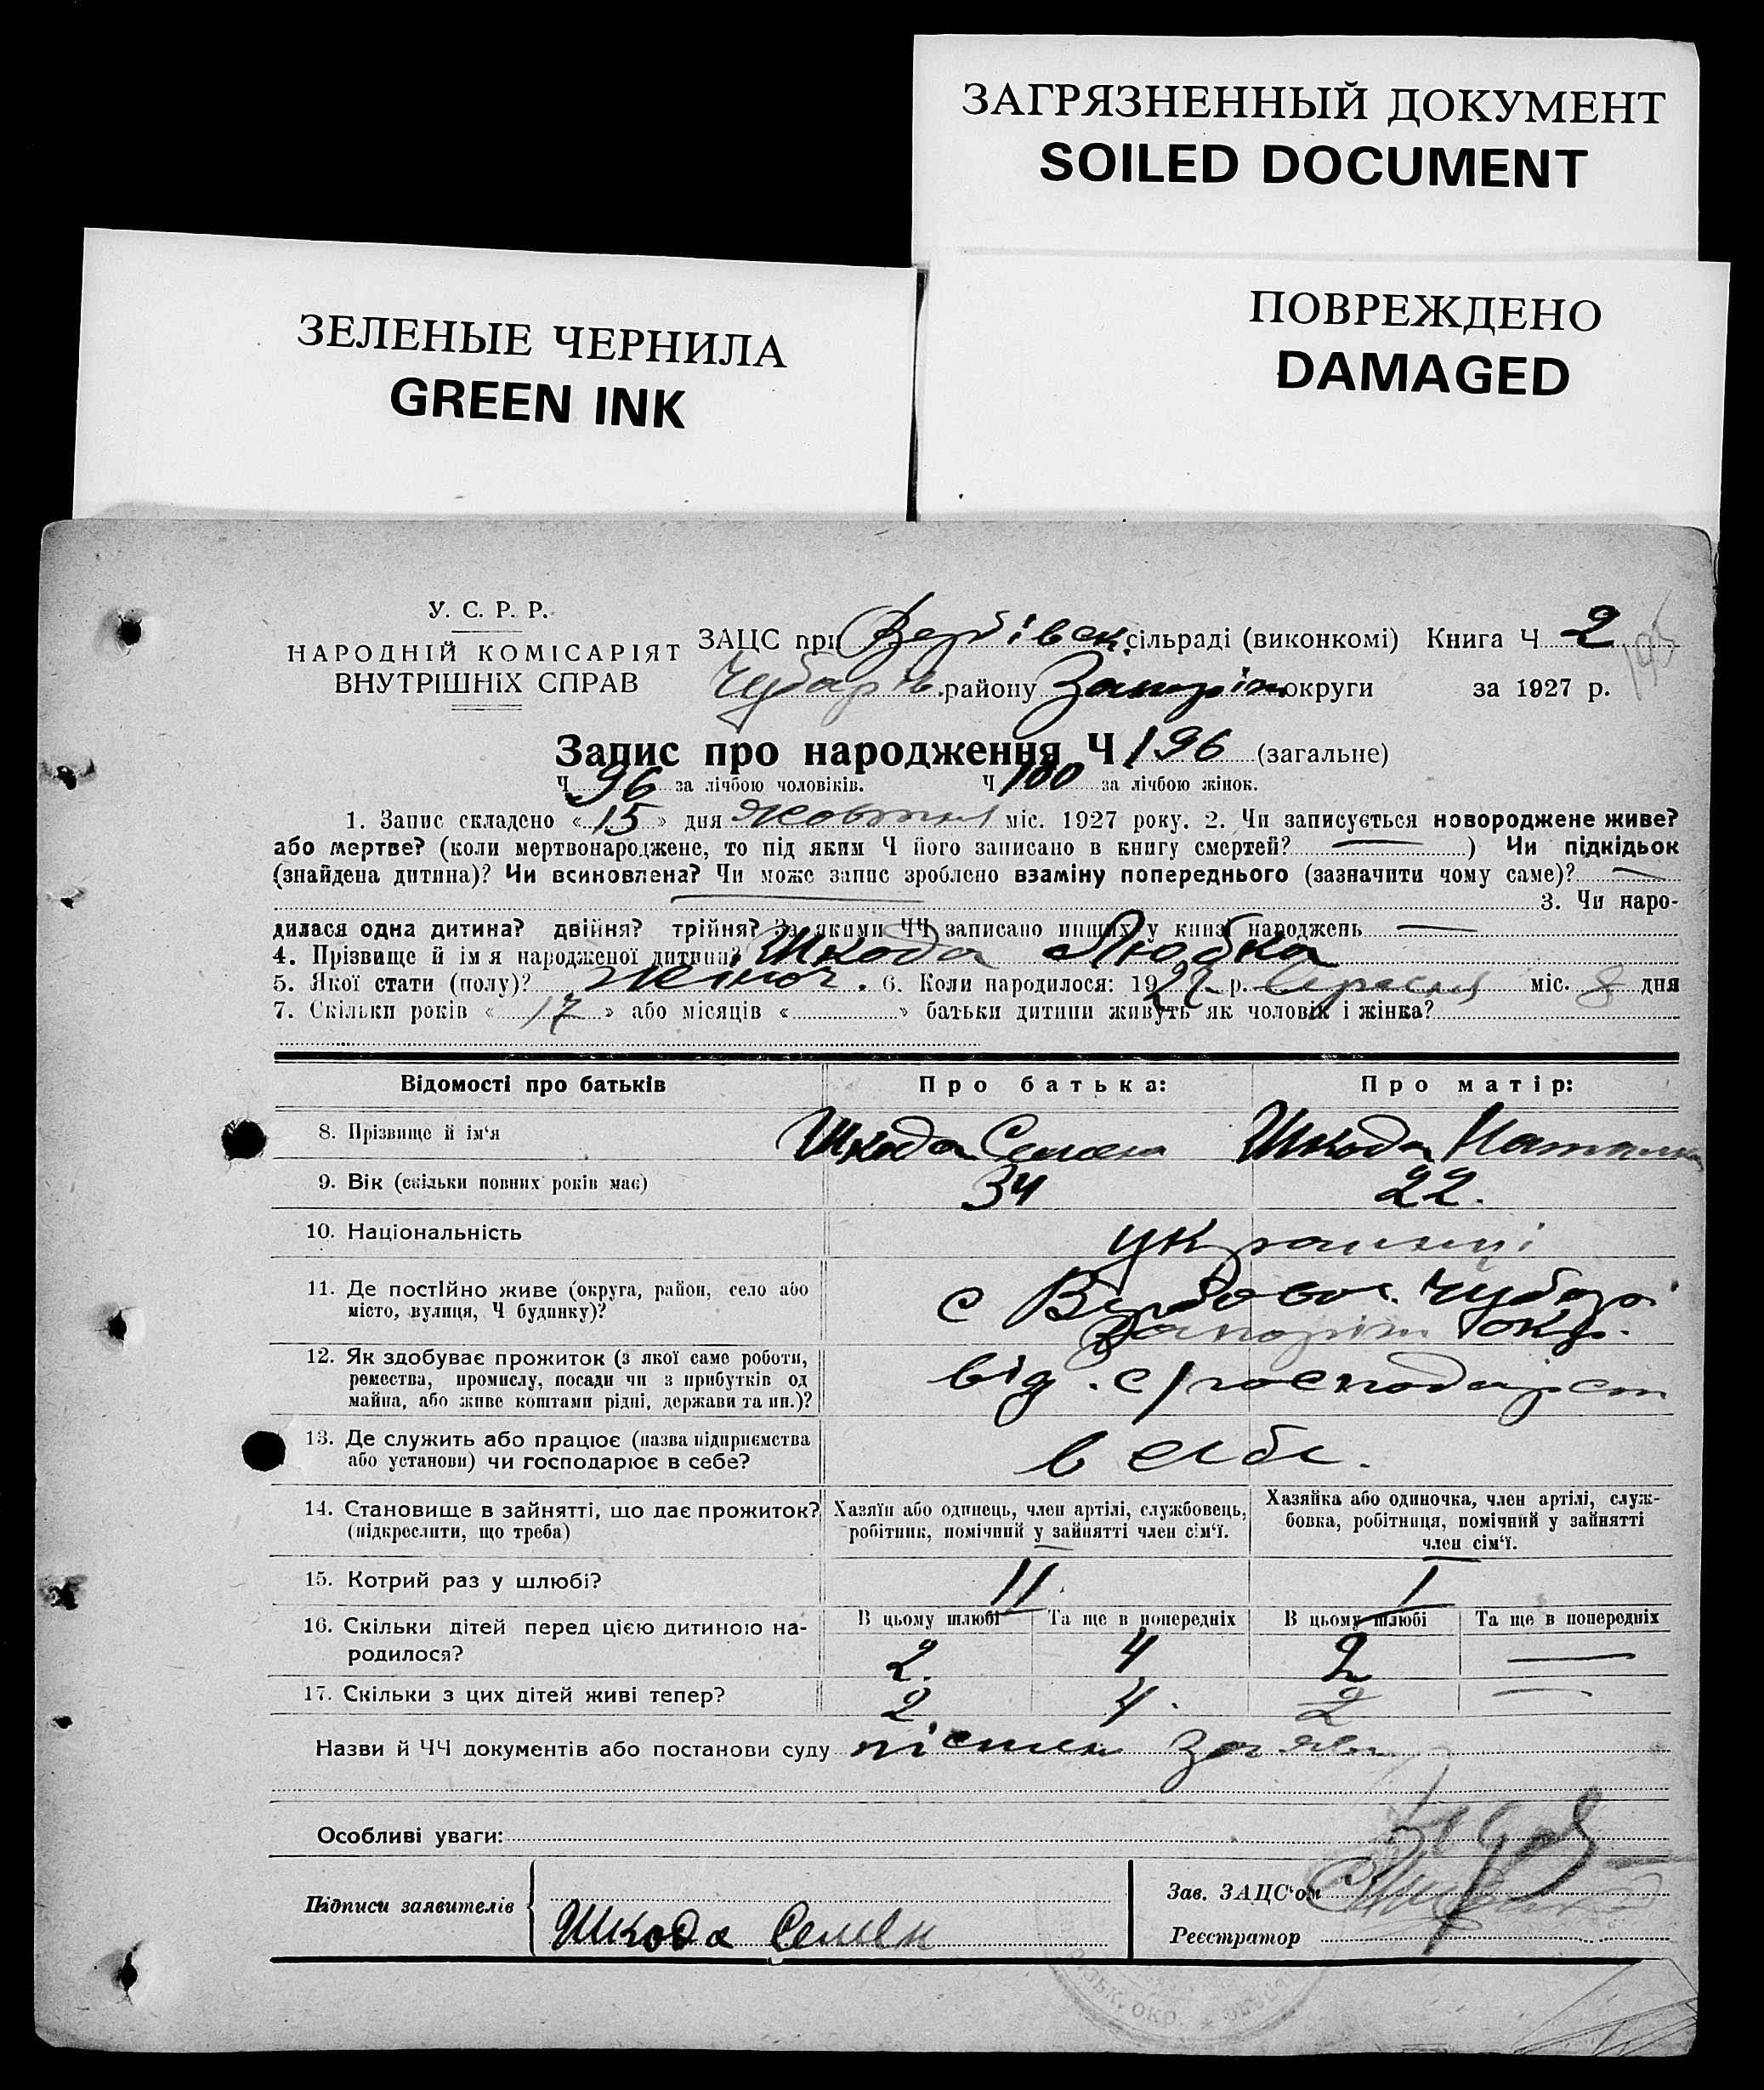 ЗАГРЯЗНЕННЫЙ ДОКУМЕНТ
SOILED DOCUMENT
ЗЕЛЕНЫЕ ЧЕРНИЛА
GREEN INK
ПОВРЕЖДЕНО
DAMAGED
У. С. Р. Р.
НАРОДНІЙ КОМІСАРІЯТ
ВНУТРІШНІХ СПРАВ
ЗАЦС при Вербівськ. сільраді (виконкомі) Книга Ч 2
195
Чубарів. району Запоріж округи за 1927 р.
Запис про народження Ч 196 (загальне)
Ч 96 за лічбою чоловіків. Ч 100 за лічбою жінок.
1. Запис складено « 15 » дня Жовтня міс. 1927 року. 2. Чи записується новороджене живе?
або мертве? (коли мертвонароджене, то під яким Ч його записано в книгу смертей? — ) Чи підкідьок
(знайдена дитина)? Чи всиновлена? Чи може запис зроблено взаміну попереднього (зазначити чому саме)? —
3. Чи наро-
дилася одна дитина? двійня? трійня? За якими ЧЧ записано инших у книзі народжень —
4. Прізвище й ім я народженої дитини? Шкода Любка
5. Якої стати (полу)? жіноч. 6. Коли народилося: 1927 р. Серпня міс. 8 дня
7. Скільки років « 17 » або місяців « » батьки дитини живуть як чоловік і жінка?
Відомості про батьків Про батька: Про матір:
8. Прізвище й ім‘я Шкода Семен Шкода Наталка
9. Вік (скільки повних років має) 34 22.
10. Національність українці
11. Де постійно живе (округа, район, село або
місто, вулиця, Ч будинку)?
с Вербове. Чубарі
Запоріж окр.
12. Як здобуває прожиток (з якої саме роботи,
ремества, промислу, посади чи з прибутків од
майна, або живе коштами рідні, держави та ин.)?
від. с/господарст
13. Де служить або працює (назва підприємства
або установи) чи господарює в себе?
в себе.
14. Становище в зайнятті, що дає прожиток?
(підкреслити, що треба)
Хазяїн або одинець, член артілі, службовець,
робітник, помічний у зайнятті член сім‘ї.
Хазяйка або одиночка, член артілі, служ-
бовка, робітниця, помічний у зайнятті
член сім‘ї.
15. Котрий раз у шлюбі? II I
16. Скільки дітей перед цією дитиною на-
родилося?
В цьому шлюбі Та ще в попередніх В цьому шлюбі Та ще в попередніх
2. 4 2 —
17. Скільки з цих дітей живі тепер? 2 4. 2 —
Назви й ЧЧ документів або постанови суду
Особливі уваги:
Підписи заявителів Шкода Семен
Зав. ЗАЦС‘ом
Реєстратор
ОКР.